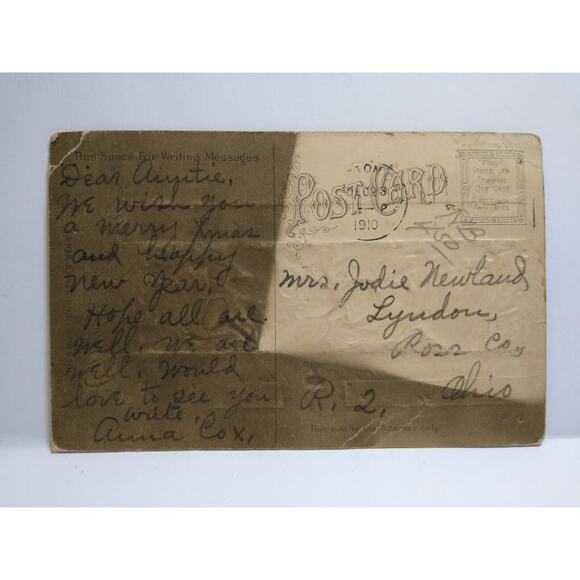 This Space For Writing Messages
Dear Auntie,
We wish you
a merry Xmas
and happy
New Year,
Hope all are
well. We are
well. Would
love to see you
write.
Anna Cox,
POST CARD
DEC 23
1910
Place
Stamp Here
One Cent
Two Cents
Mrs. Jodie Newland,
Lyndon,
Ross Co.,
R. 2, Ohio
This side for the Address only